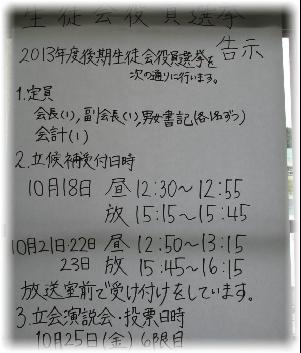 生徒会役員選挙
告示
2013年度後期生徒会役員選挙を
次の通りに行います。
1.定員
会長(1),副会長(1),男女書記(各1名ずつ)
会計(1)
2.立候補受付日時
10月18日 昼 12:30〜12:55
放 15:15〜15:45
10月21日・22日 昼 12:50〜13:15
23日 放 15:45〜16:15
放送室前で受け付けをしています。
3.立会演説会・投票日時
10月25日(金) 6限目